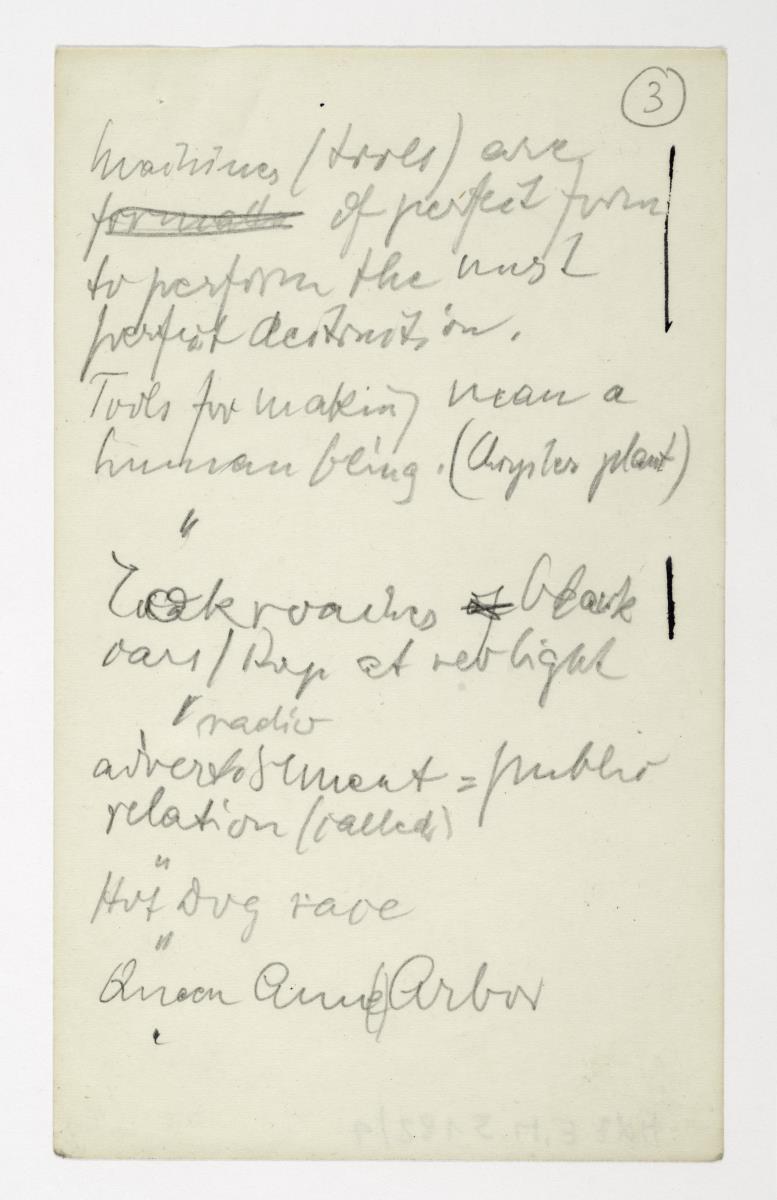 3
Machines (tools) are
of perfect form
to perform the most
perfect destruction.
Tools for making mean a
human being. (Chrysler plant)
"
black
cars / at red light
" radio
advertisement = public
relation (called)
"
Hot Dog race
"
Queen Anne Arbor